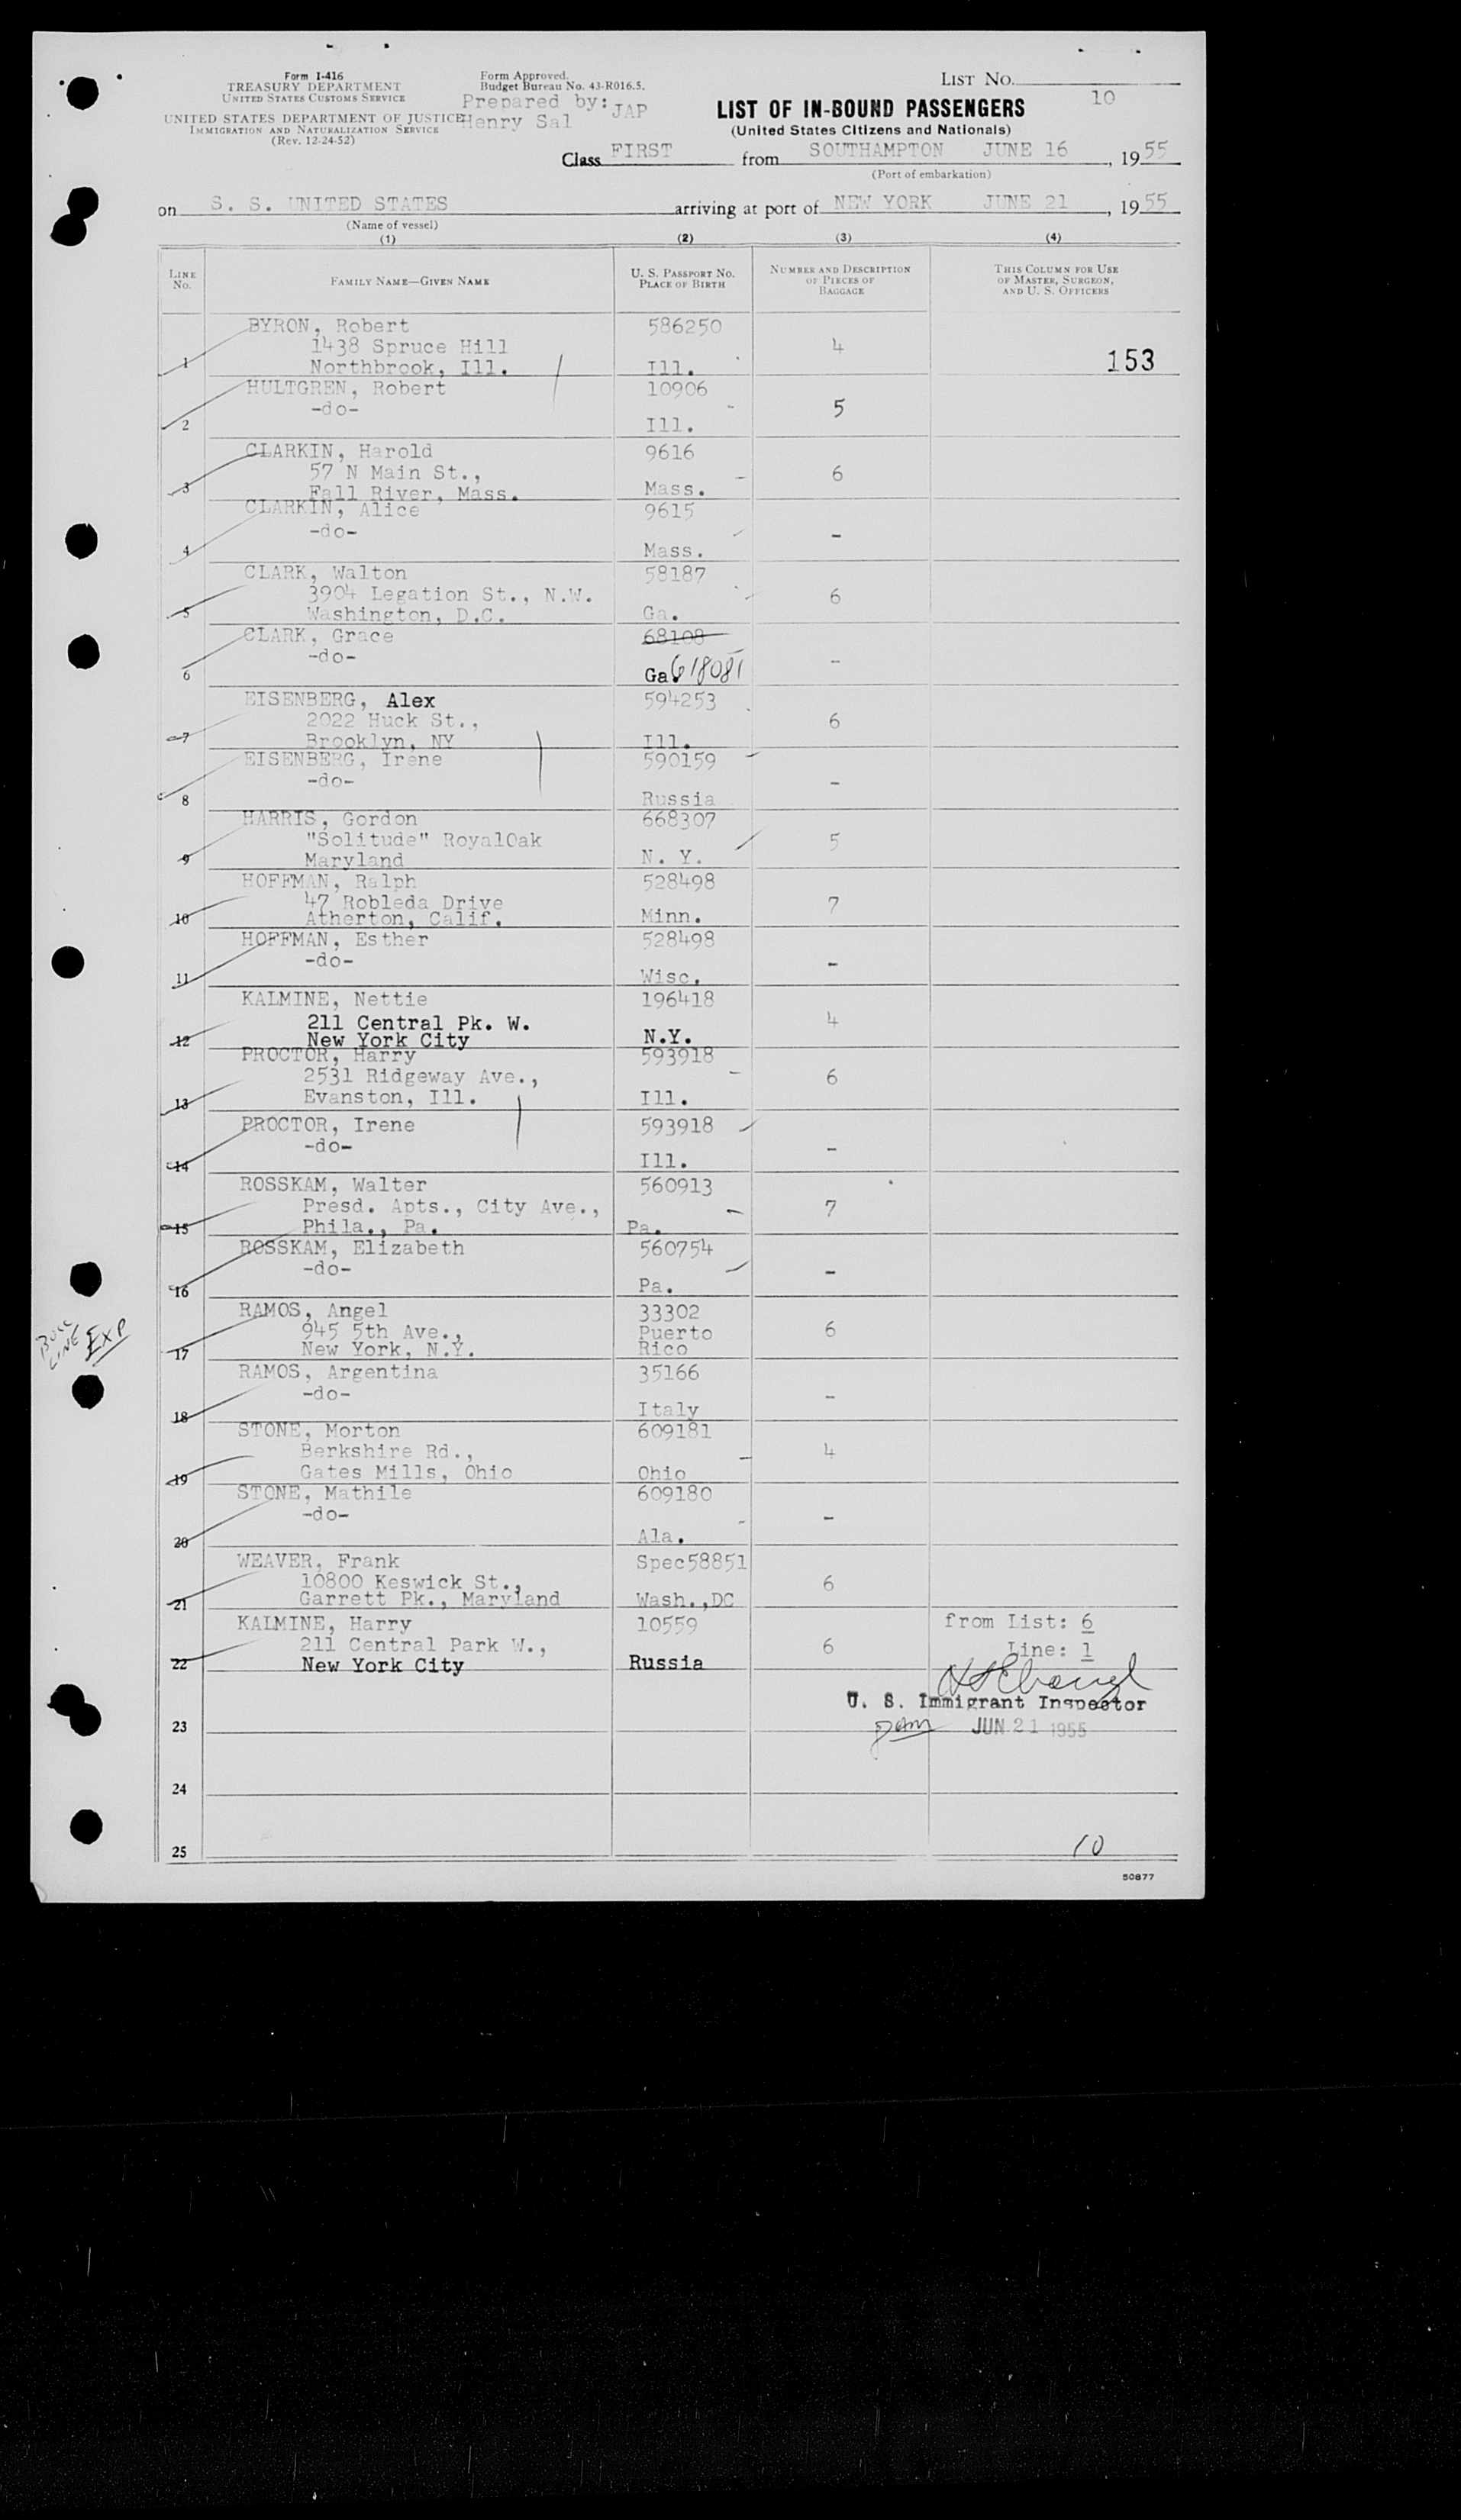 Form I-416
TREASURY DEPARTMENT
UNITED STATES CUSTOMS SERVICE
UNITED STATES DEPARTMENT OF JUSTICE
IMMIGRATION AND NATURALIZATION SERVICE
(Rev. 12-24-52)
Form Approved.
Budget Bureau No. 43-R016.5.
Prepared by: JAP
Henry Sal
LIST NO.
10
LIST OF IN-BOUND PASSENGERS
(United States Citizens and Nationals)
Class FIRST from SOUTHAMPTON JUNE 16, 1955
(Port of embarkation)
on S. S. UNITED STATES arriving at port of NEW YORK JUNE 21, 1955
(Name of vessel)
(1) (2) (3) (4)
LINE NO. FAMILY NAME—GIVEN NAME U. S. PASSPORT NO. PLACE OF BIRTH NUMBER AND DESCRIPTION OF PIECES OF BAGGAGE THIS COLUMN FOR USE OF MASTER, SURGEON, AND U. S. OFFICERS
BYRON, Robert 586250
1438 Spruce Hill 4
1 Northbrook, Ill. Ill. 153
HULTGREN, Robert 10906
-do- 5
2 Ill.
CLARKIN, Harold 9616
57 N Main St., 6
3 Fall River, Mass. Mass.
CLARKIN, Alice 9615
-do- -
4 Mass.
CLARK, Walton 58187
3904 Legation St., N.W. 6
5 Washington, D.C. Ga.
CLARK, Grace 68108
-do- -
6 Ga 618081
EISENBERG, Alex 594253
2022 Huck St., 6
7 Brooklyn, NY Ill.
EISENBERG, Irene 590159
-do- -
8 Russia
HARRIS, Gordon 668307
"Solitude" RoyalOak 5
9 Maryland N. Y.
HOFFMAN, Ralph 528498
47 Robleda Drive 7
10 Atherton, Calif. Minn.
HOFFMAN, Esther 528498
-do- -
11 Wisc.
KALMINE, Nettie 196418
211 Central Pk. W. 4
12 New York City N.Y.
PROCTOR, Harry 593918
2531 Ridgeway Ave., 6
13 Evanston, Ill. Ill.
PROCTOR, Irene 593918
-do- -
14 Ill.
ROSSKAM, Walter 560913
Presd. Apts., City Ave., 7
15 Phila., Pa. Pa.
ROSSKAM, Elizabeth 560754
-do- -
16 Pa.
RAMOS, Angel 33302
945 5th Ave., Puerto 6
17 New York, N.Y. Rico
RAMOS, Argentina 35166
-do- -
18 Italy
STONE, Morton 609181
Berkshire Rd., 4
19 Gates Mills, Ohio Ohio
STONE, Mathile 609180
-do- -
20 Ala.
WEAVER, Frank Spec58851
10800 Keswick St., 6
21 Garrett Pk., Maryland Wash.,DC
KALMINE, Harry 10559 from List: 6
211 Central Park W., 6 Line: 1
22 New York City Russia
U. S. Immigrant Inspector
23 JUN 21 1955
24
25 10
50877
LINE EXP